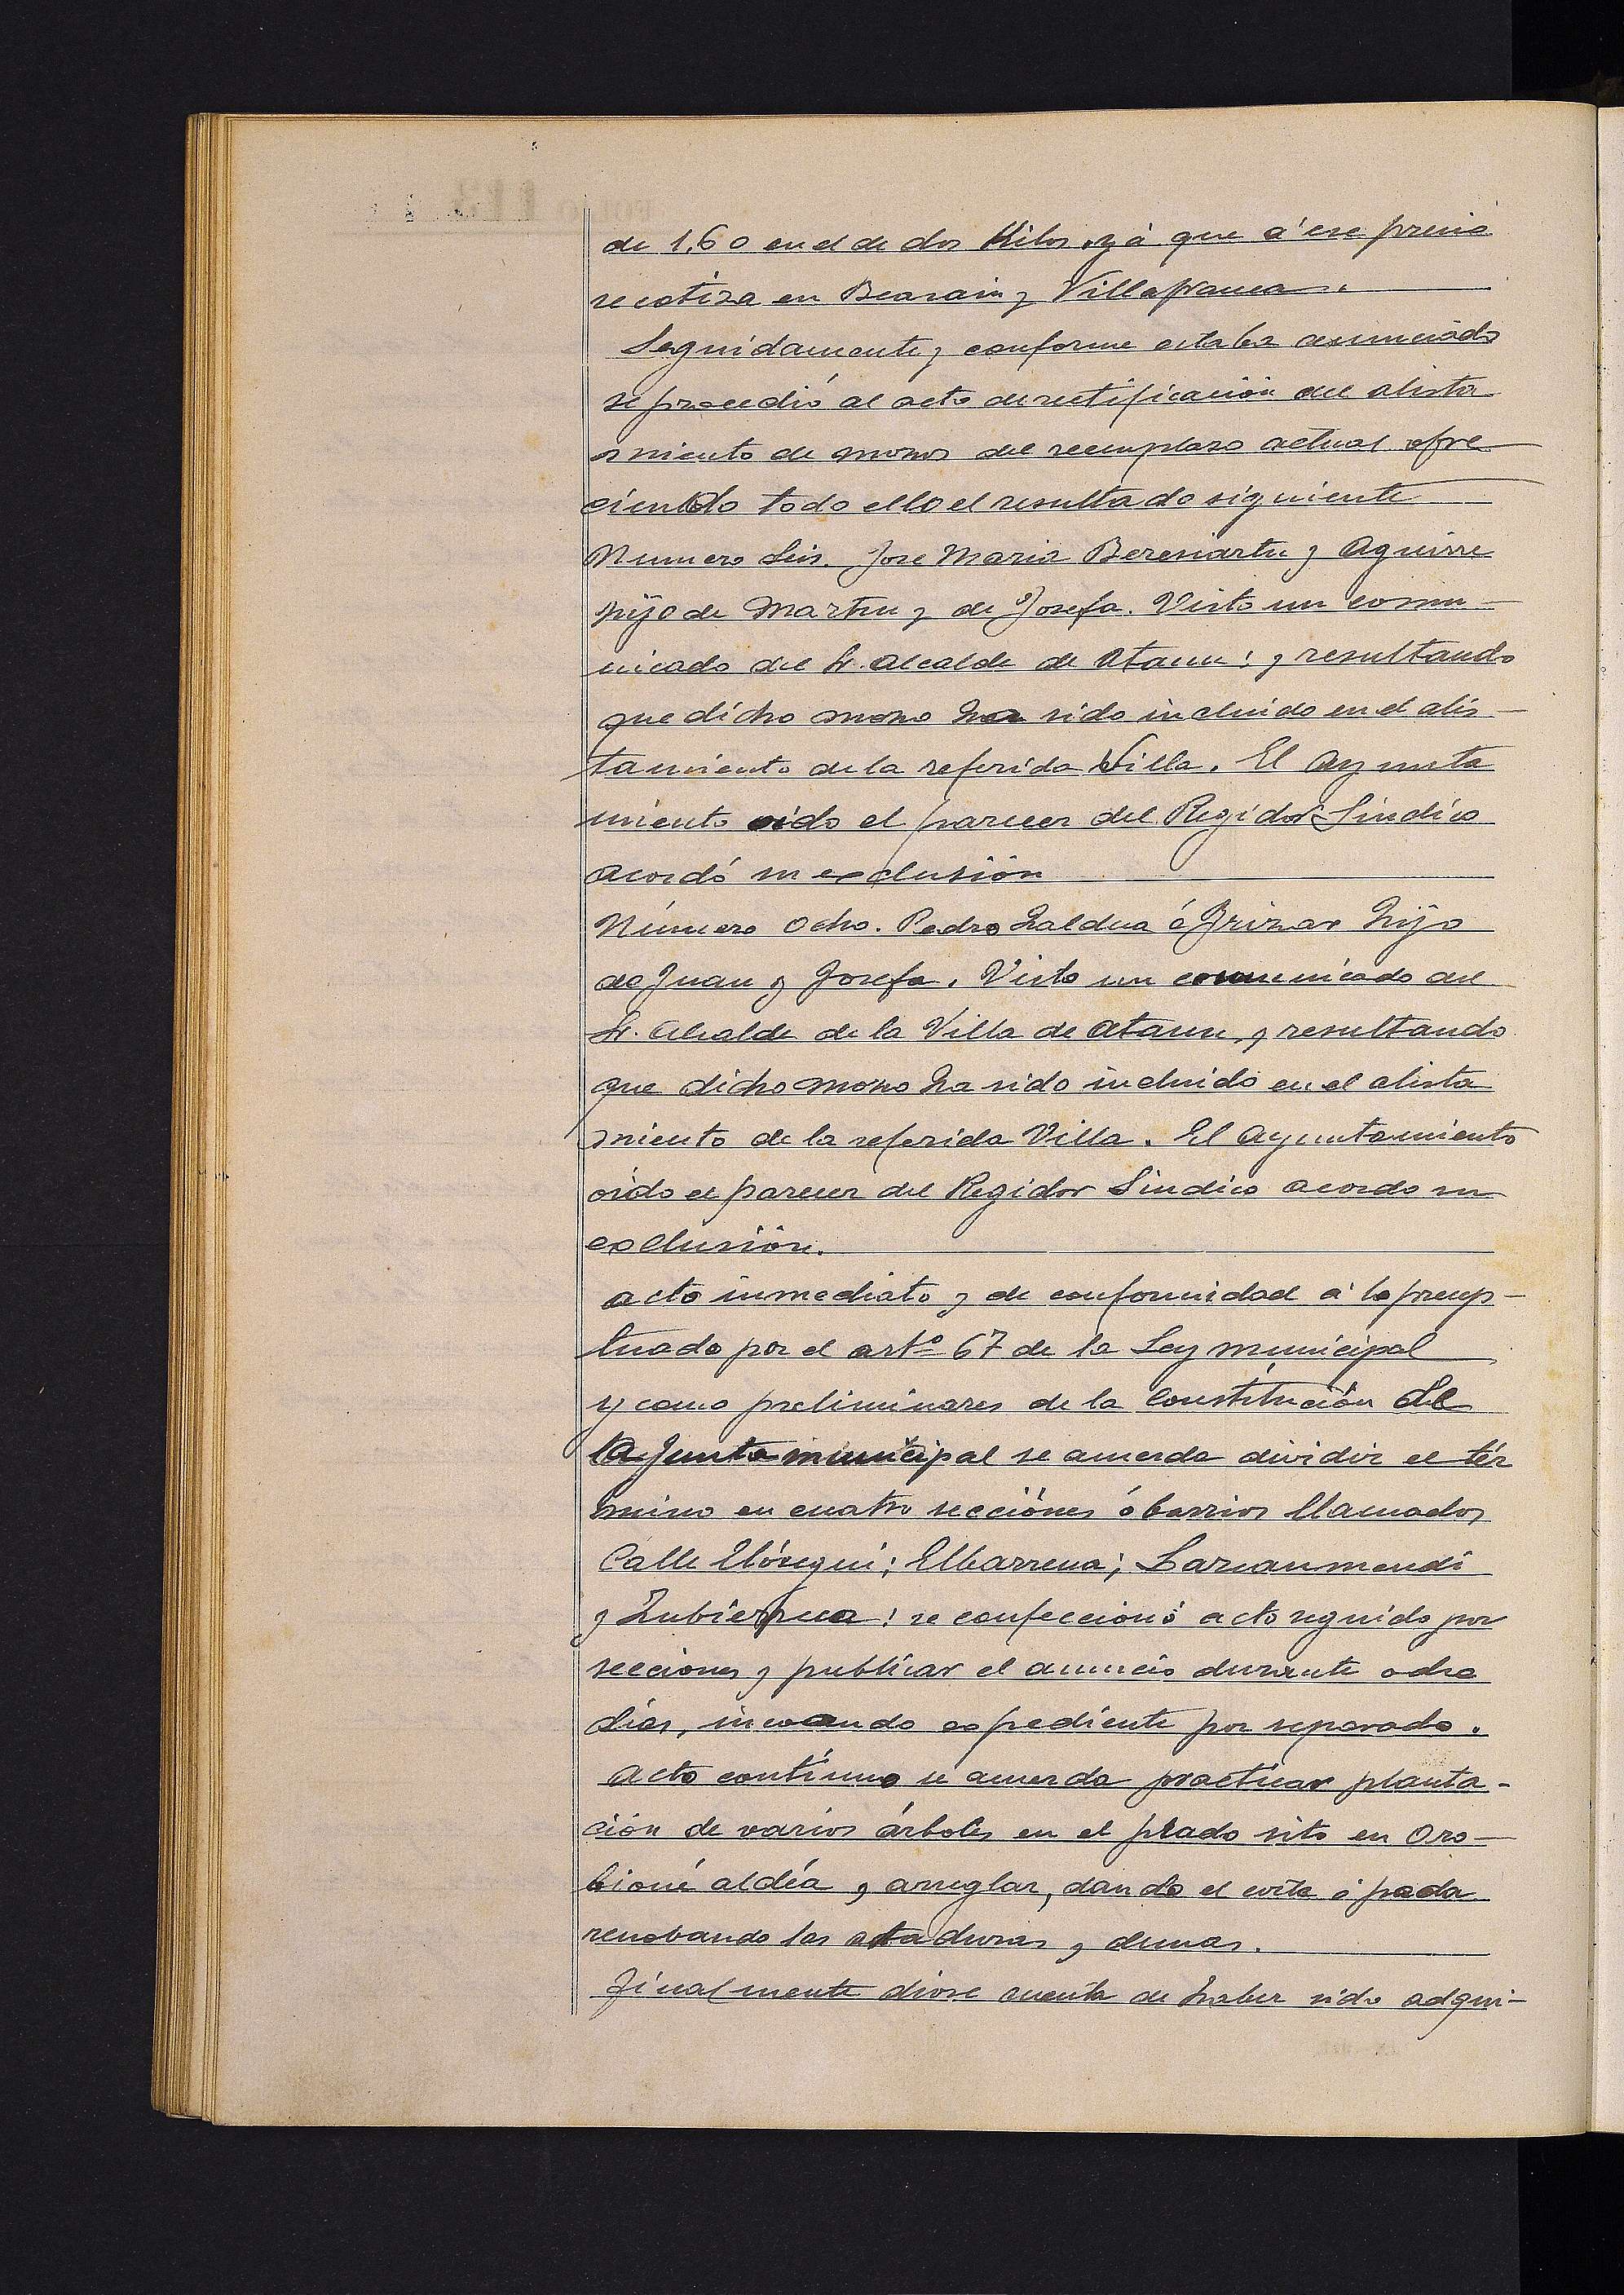 de 1,60 en el de dos Kilos, yá que á ese precio
se cotiza en Beasain y Villafranca.
Seguidamente y conforme estaba anunciado
se procedió al acto de rectificación del alista
miento de mozos del reemplazo actual ofre
ciendo todo ello el resultado siguiente
Numero Seis. Jose Maria Beresiartu y Aguirre
hijo de Martin y de Josefa. Visto un comu-
nicado del Sr. Alcalde de Ataun: y resultando
que dicho mozo ha sido incluido en el alis-
tamiento de la referida Villa. El Ayunta
miento oido el parecer del Regidor Sindico
acordó su exclusión
Número Ocho. Pedro Zaldua é Irizar hijo
de Juan y Josefa. Visto un comunicado del
Sr. Alcalde de la Villa de Ataun, y resultando
que dicho mozo ha sido incluido en el alista
miento de la referida Villa. El Ayuntamiento
oido el parecer del Regidor Sindico acordo su
exclusión.
Acto inmediato y de conformidad á lo precep-
tuado por el artº 67 de la Ley municipal
y como preliminares de la Constitución de
la Junta municipal se acuerda dividir el tér
mino en cuatro secciónes ó barrios llamados
Calle Elósegui; Elbarrena; Larcanmendi
y Zubierrea: se confeccionó acto seguido por
secciones y publicar el anuncio durante ocho
dias, incoando expediente por separado.
Acto contínuo se acuerda practicar planta-
ción de varios árboles en el prado sito en Oro-
bioné aldéa y arreglar, dando el corte ó poda
renobando las ataduras y demas.
Finalmente diose cuenta de haber sido adqui-